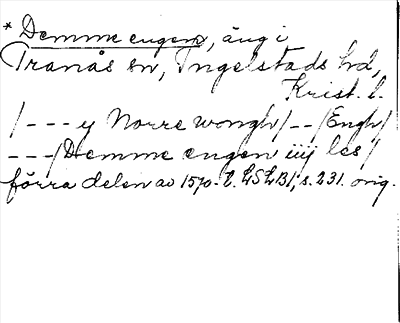 * Demme engen, äng i
Tranås sn, Ingelstads hd,
Krist. l.
/--- y Norre wongh/--/Engh/
---/Demme engen iiij les/
förra delen av 1570-t. LSLB1, s. 231. orig.